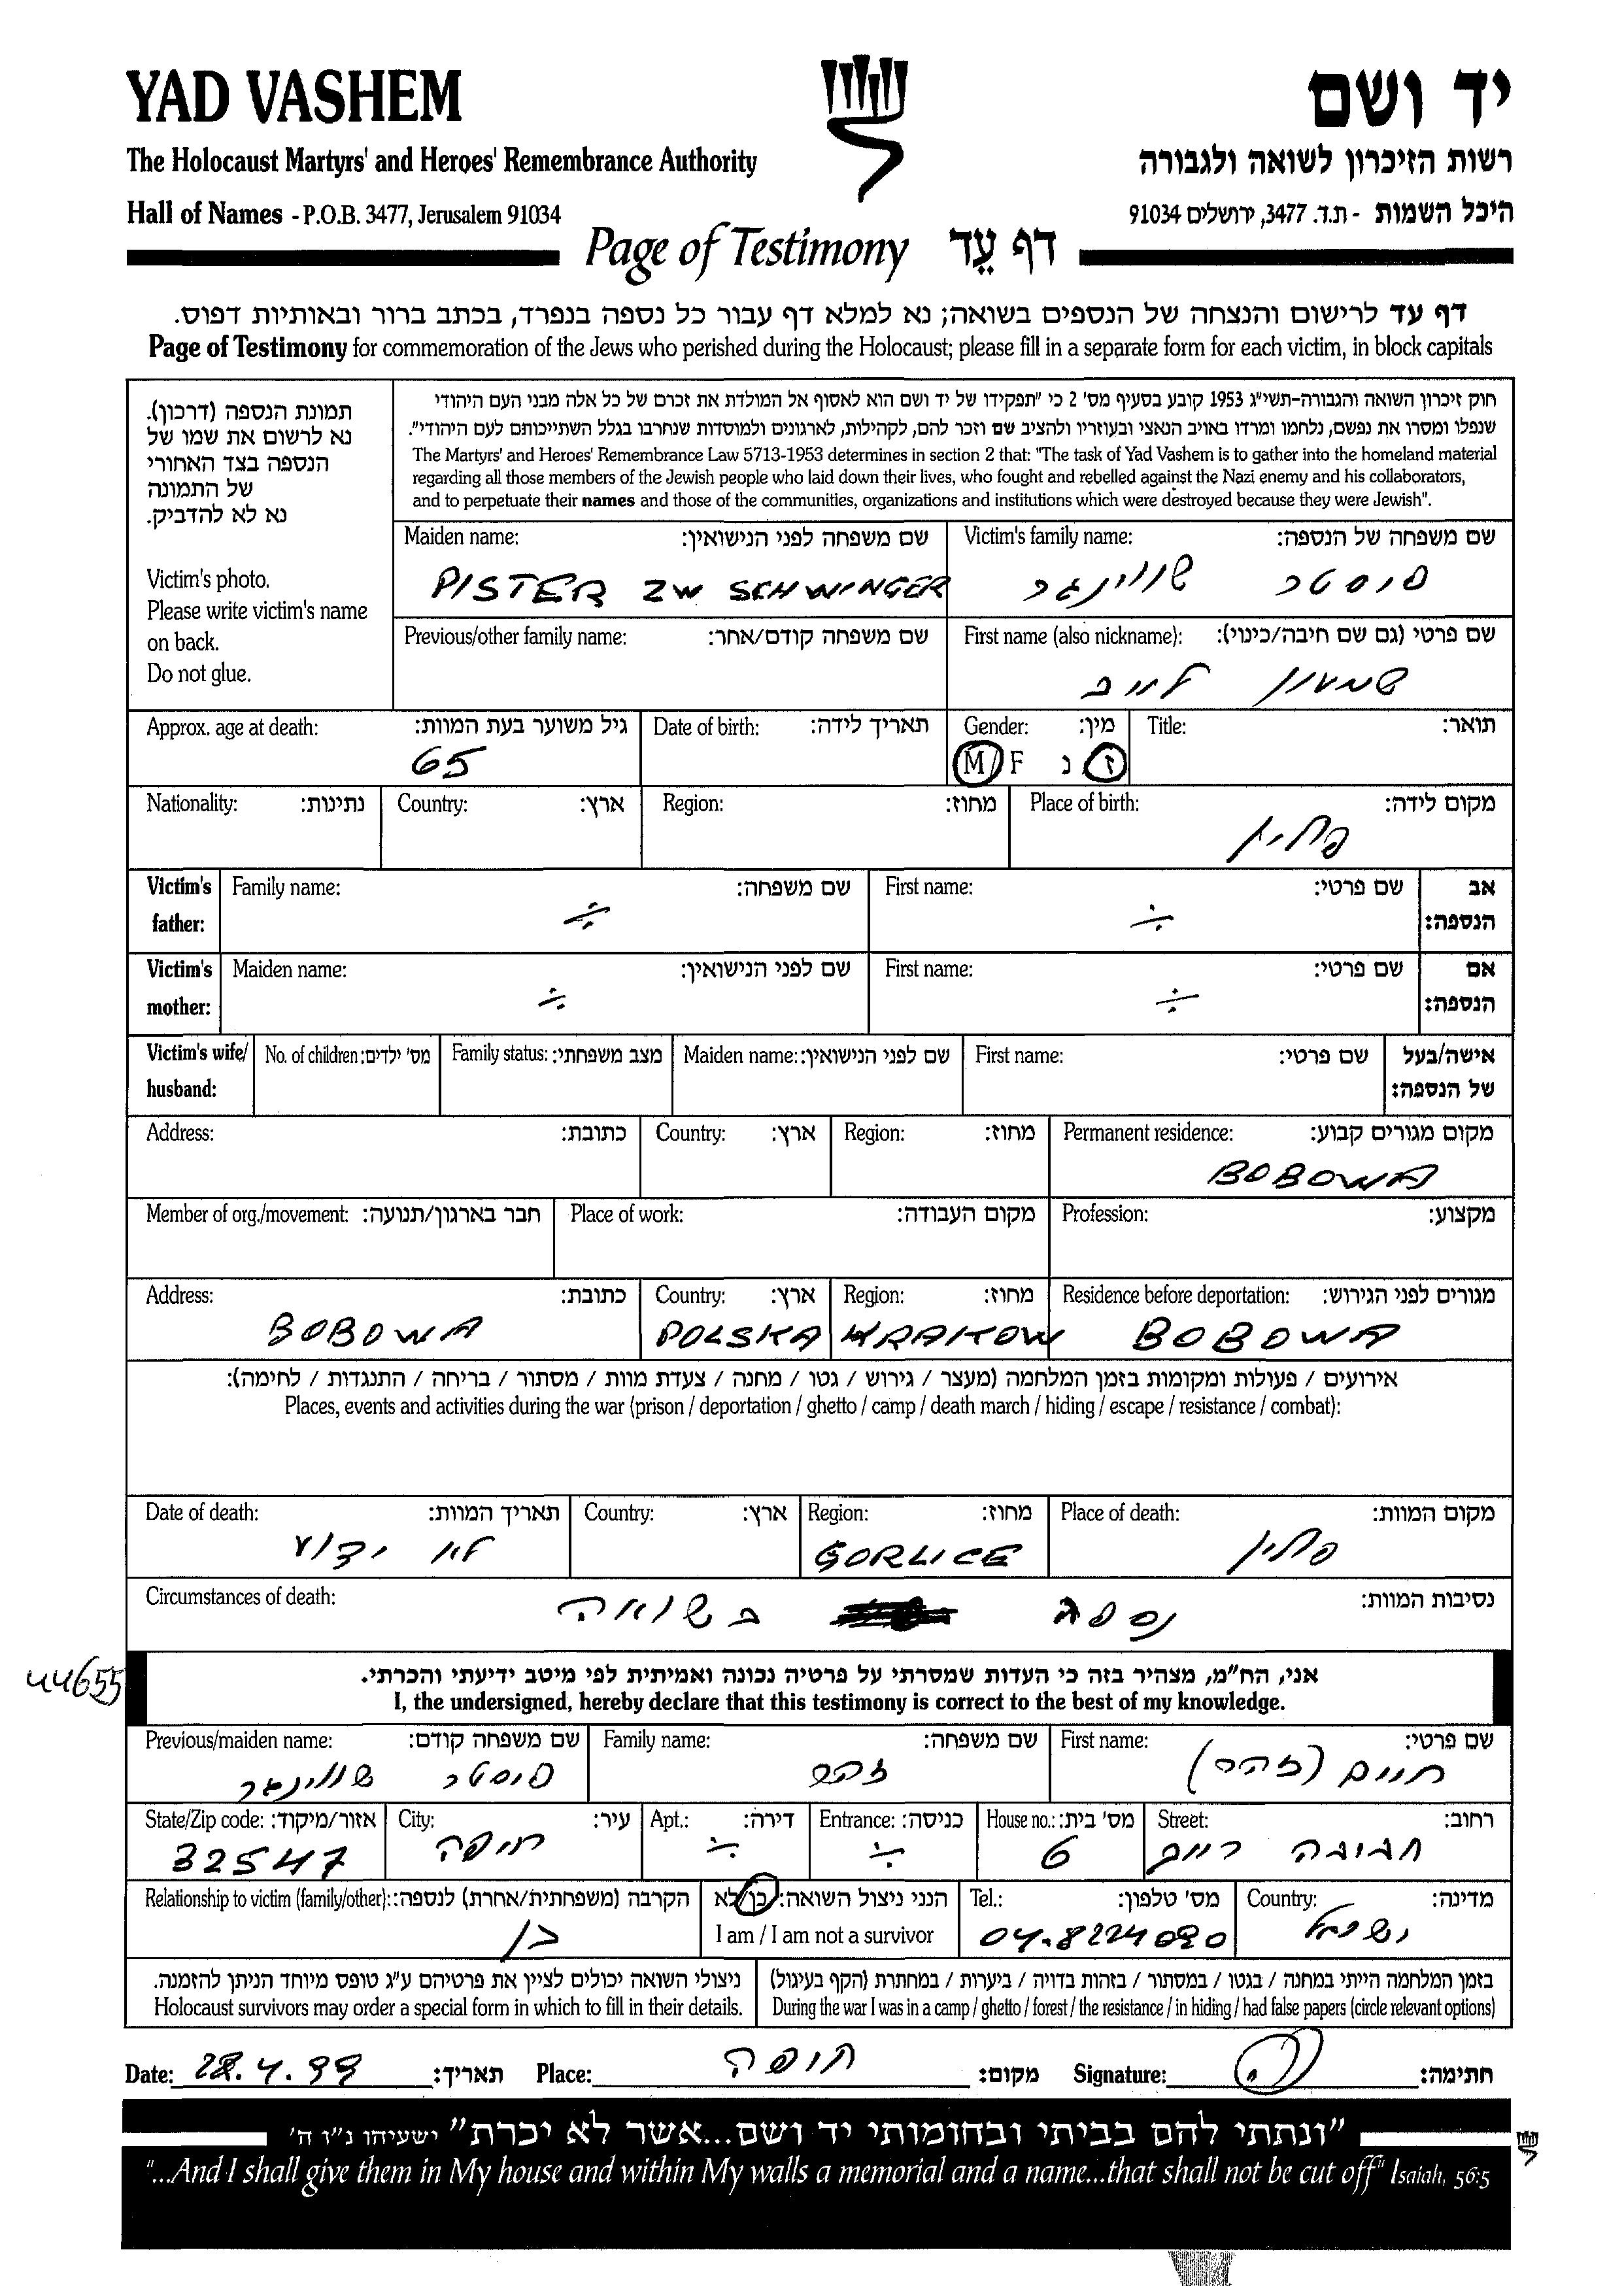 YAD VASHEM יד ושם
The Holocaust Martyrs' and Heroes' Remembrance Authority רשות הזיכרון לשואה ולגבורה
Hall of Names - P.O.B. 3477, Jerusalem 91034 היכל השמות - ת.ד. 3477, ירושלים 91034
Page of Testimony דף עֵד
דף עד לרישום והנצחה של הנספים בשואה; נא למלא דף עבור כל נספה בנפרד, בכתב ברור ובאותיות דפוס.
Page of Testimony for commemoration of the Jews who perished during the Holocaust; please fill in a separate form for each victim, in block capitals
תמונת הנספה (דרכון).
נא לרשום את שמו של
הנספה בצד האחורי
של התמונה
נא לא להדביק.
Victim's photo.
Please write victim's name
on back.
Do not glue.
חוק זיכרון השואה והגבורה-תשי"ג 1953 קובע בסעיף מס' 2 כי "תפקידו של יד ושם הוא לאסוף אל המולדת את זכרם של כל אלה מבני העם היהודי
שנפלו ומסרו את נפשם, נלחמו ומרדו באויב הנאצי ובעוזריו ולהציב שם וזכר להם, לקהילות, לארגונים ולמוסדות שנחרבו בגלל השתייכותם לעם היהודי".
The Martyrs' and Heroes' Remembrance Law 5713-1953 determines in section 2 that: "The task of Yad Vashem is to gather into the homeland material
regarding all those members of the Jewish people who laid down their lives, who fought and rebelled against the Nazi enemy and his collaborators,
and to perpetuate their names and those of the communities, organizations and institutions which were destroyed because they were Jewish".
Maiden name: שם משפחה לפני הנישואין: Victim's family name: שם משפחה של הנספה:
PISTER ZW SCHWINGER פיסטר שווינגר
Previous/other family name: שם משפחה קודם/אחר: First name (also nickname): שם פרטי (גם שם חיבה/כינוי):
שמעון לייב
Approx. age at death: גיל משוער בעת המוות: Date of birth: תאריך לידה: Gender: מין: Title: תואר:
65 M/F ז נ
Nationality: נתינות: Country: ארץ: Region: מחוז: Place of birth: מקום לידה:
פולין
Victim's father: Family name: שם משפחה: First name: שם פרטי: אב הנספה:
÷ ÷
Victim's mother: Maiden name: שם לפני הנישואין: First name: שם פרטי: אם הנספה:
÷ ÷
Victim's wife/ husband: No. of children: מס' ילדים: Family status: מצב משפחתי: Maiden name: שם לפני הנישואין: First name: שם פרטי: אישה/בעל של הנספה:
Address: כתובת: Country: ארץ: Region: מחוז: Permanent residence: מקום מגורים קבוע:
BOBOWA
Member of org./movement: חבר בארגון/תנועה: Place of work: מקום העבודה: Profession: מקצוע:
Address: כתובת: Country: ארץ: Region: מחוז: Residence before deportation: מגורים לפני הגירוש:
BOBOWA POLSKA KRAKOW BOBOWA
אירועים / פעולות ומקומות בזמן המלחמה (מעצר / גירוש / גטו / מחנה / צעדת מוות / מסתור / בריחה / התנגדות / לחימה):
Places, events and activities during the war (prison / deportation / ghetto / camp / death march / hiding / escape / resistance / combat):
Date of death: תאריך המוות: Country: ארץ: Region: מחוז: Place of death: מקום המוות:
לא ידוע GORLICE פולין
Circumstances of death: נסיבות המוות:
נספה בשואה
44655
אני, הח"מ, מצהיר בזה כי העדות שמסרתי על פרטיה נכונה ואמיתית לפי מיטב ידיעתי והכרתי.
I, the undersigned, hereby declare that this testimony is correct to the best of my knowledge.
Previous/maiden name: שם משפחה קודם: Family name: שם משפחה: First name: שם פרטי:
פיסטר שווינגר זהר חיים (זהר)
State/Zip code: אזור/מיקוד: City: עיר: Apt.: דירה: Entrance: כניסה: House no.: מס' בית: Street: רחוב:
32547 חיפה ÷ ÷ 6 חביבה רייק
Relationship to victim (family/other): הקרבה (משפחתית/אחרת) לנספה: הנני ניצול השואה: כן/לא Tel.: מס' טלפון: Country: מדינה:
בן I am / I am not a survivor 04.8224090 ישראל
ניצולי השואה יכולים לציין את פרטיהם ע"ג טופס מיוחד הניתן להזמנה. בזמן המלחמה הייתי במחנה / בגטו / במסתור / בזהות בדויה / ביערות / במחתרת (הקף בעיגול)
Holocaust survivors may order a special form in which to fill in their details. During the war I was in a camp / ghetto / forest / the resistance / in hiding / had false papers (circle relevant options)
Date: 28.4.99 תאריך: Place: חיפה מקום: Signature: חתימה:
"ונתתי להם בביתי ובחומותי יד ושם...אשר לא יכרת" ישעיהו נ"ו ה'
"...And I shall give them in My house and within My walls a memorial and a name...that shall not be cut off" Isaiah, 56:5